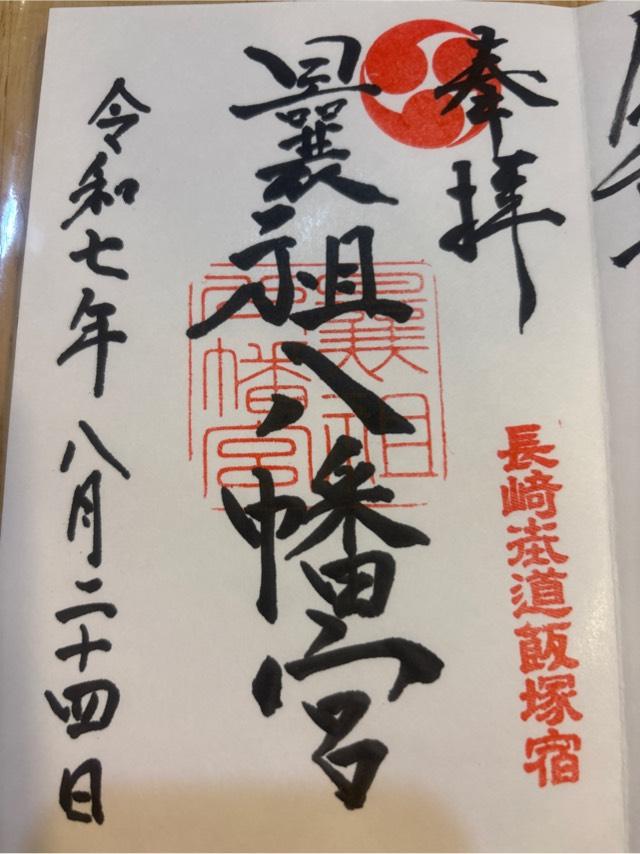 奉拝
長崎街道飯塚宿
曩祖八幡宮
曩祖八幡宮
令和七年八月二十四日